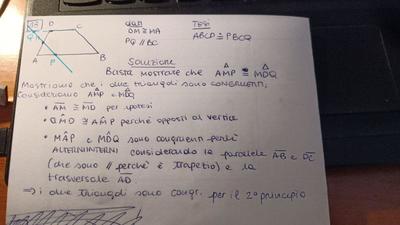 D C
Q M
A P B
dati
DM ≅ MA
PQ // BC
Tesi
ABCD ≅ PBCQ
Soluzione
Basta mostrare che AMP ≅ MDQ
Mostriamo che i due triangoli sono congruenti,
consideriamo AMP e MDQ
• AM ≅ MD per ipotesi
• QMD ≅ AMP perché opposti al vertice
• MAP e MDQ sono congruenti perché
ALTERNI INTERNI considerando le parallele AB e DC
(che sono // perché è trapezio) e la
trasversale AD
⇒ i due triangoli sono congr. per il 2° principio